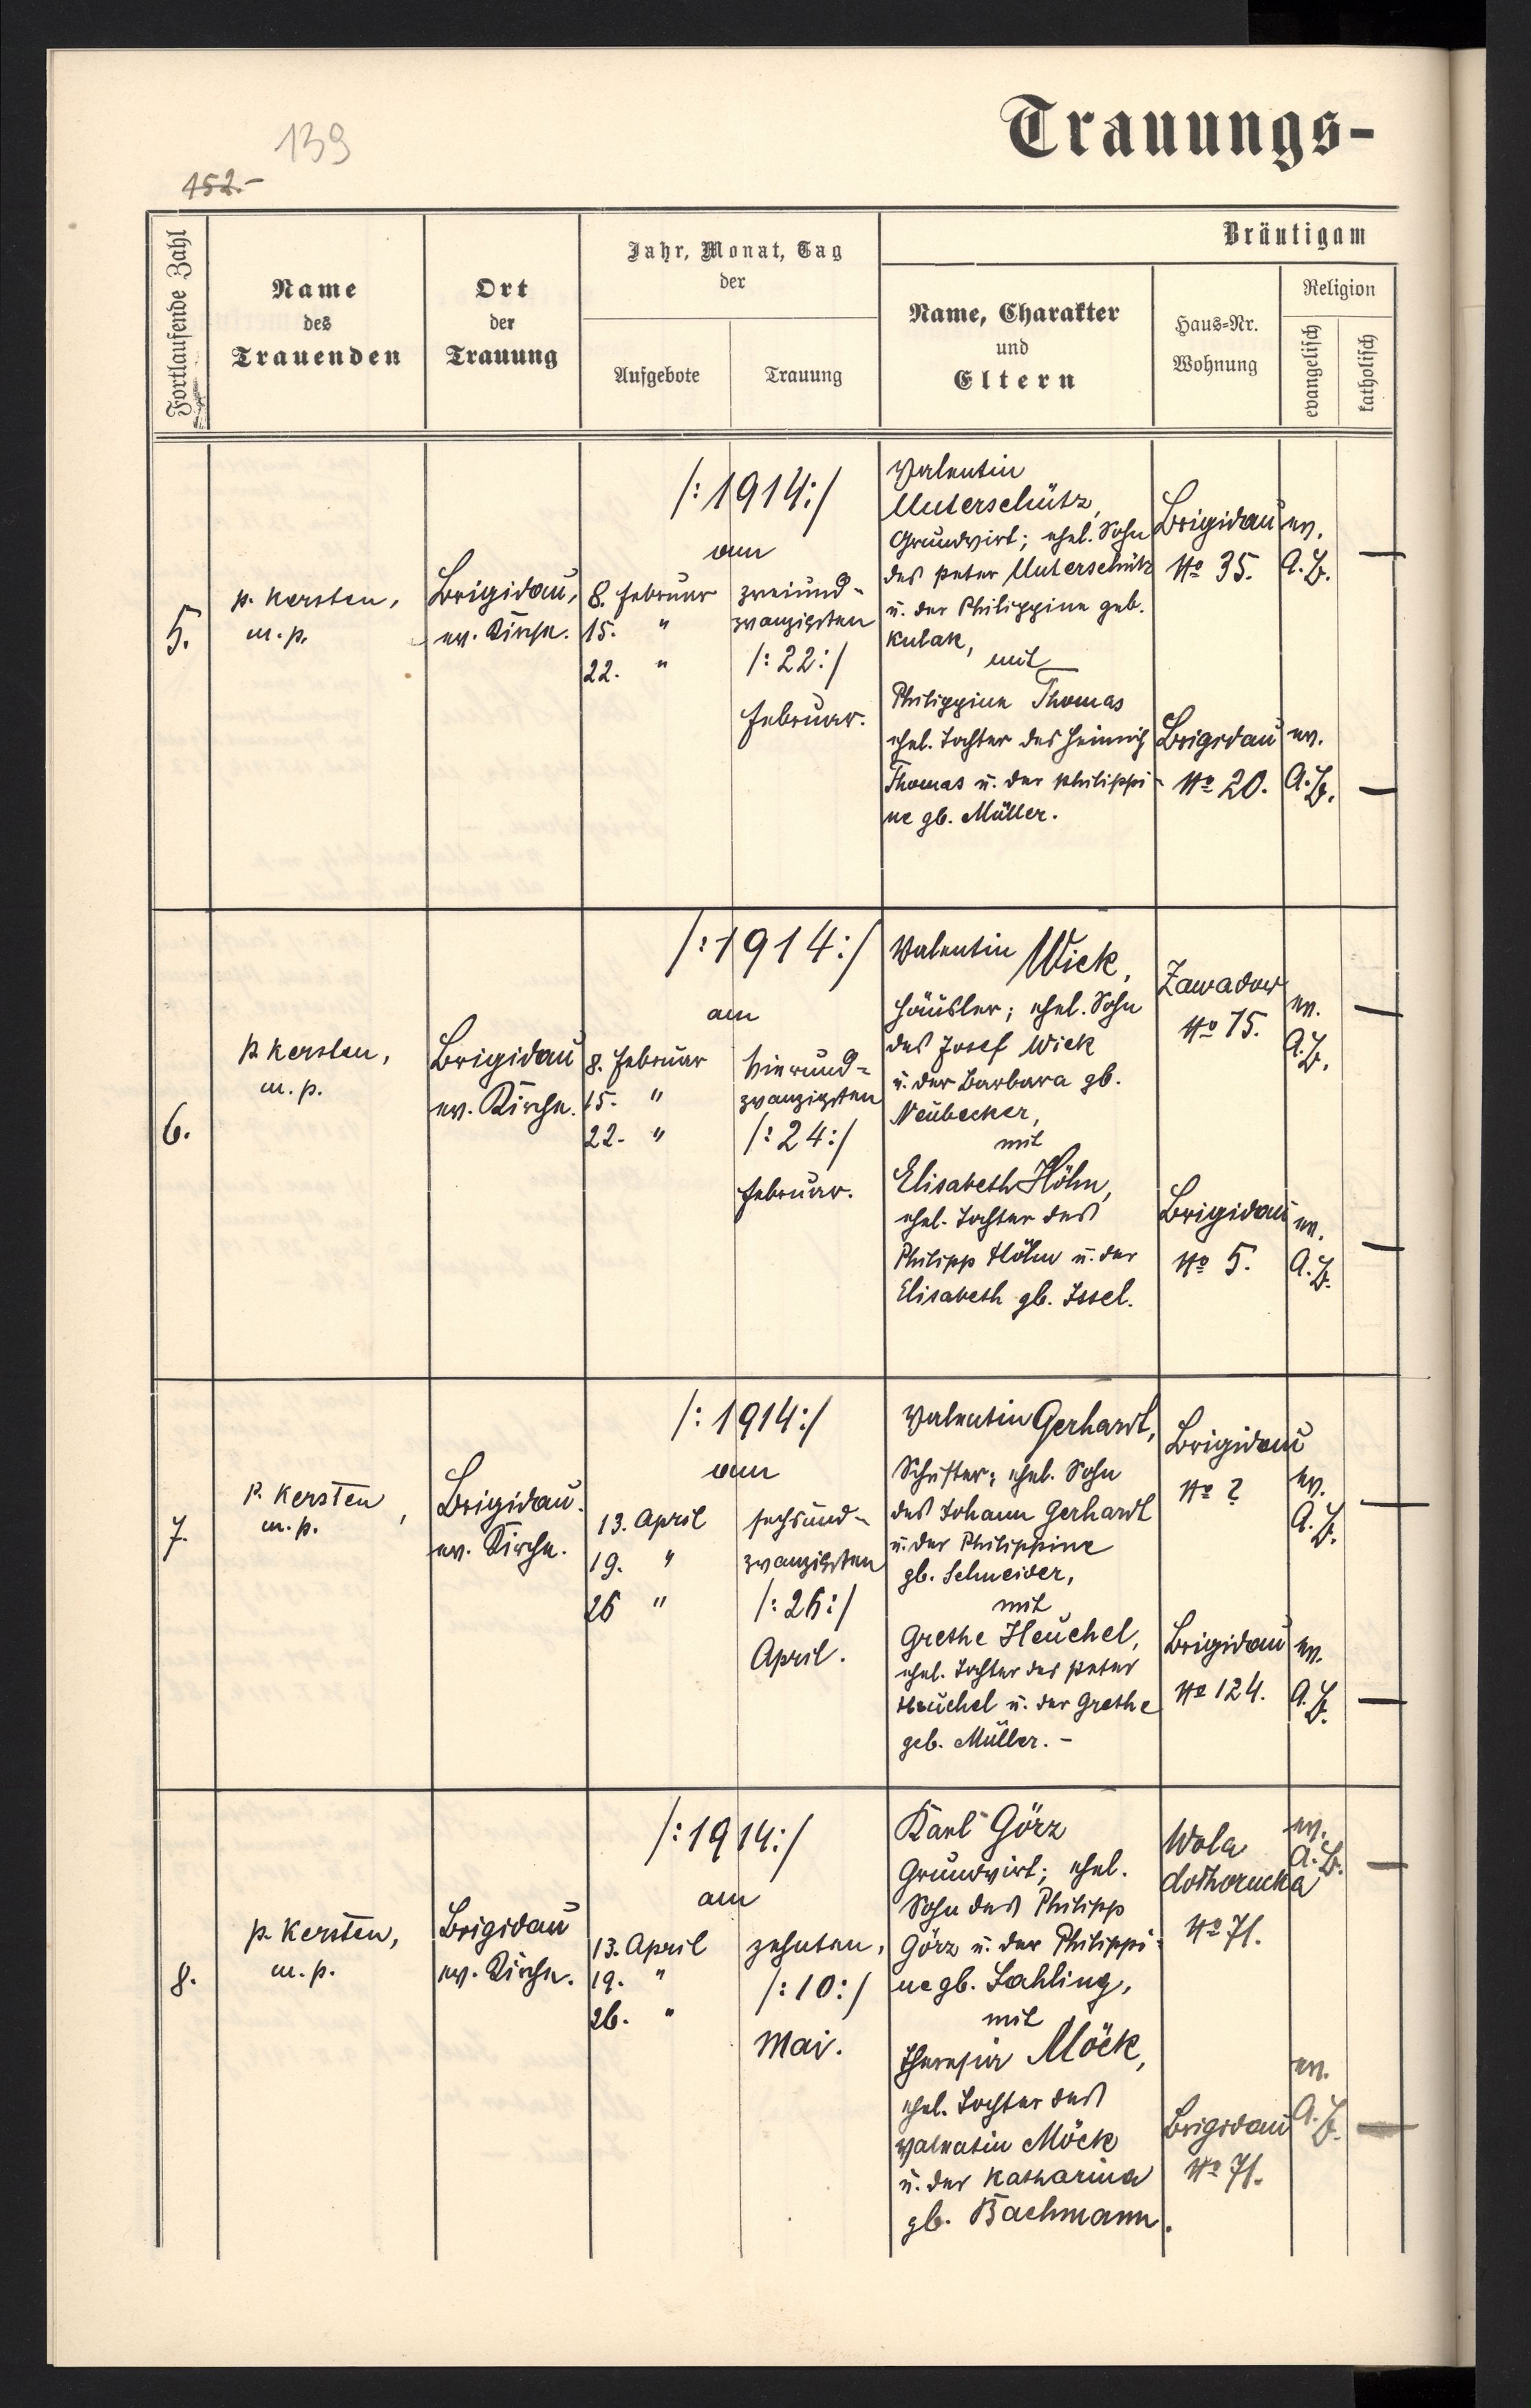 139
152.-
Trauungs-
Fortlaufende Zahl
Name
des
Trauenden
Ort
der
Trauung
Jahr, Monat, Tag
der
Aufgebote
Trauung
Bräutigam
Name, Charakter
und
Eltern
Haus-Nr.
Wohnung
Religion
evangelisch
katholisch
5.
p. Kersten,
m.p.
Brigidau,
ev. Kirche.
/:1914:/
am
8. Februar
15. "
22. "
zweiund-
zwanzigsten
/:22:/
Februar.
Valentin
Unterschütz,
Grundwirt; ehel. Sohn
des Peter Unterschütz
u. der Philippine geb.
Kulak,
mit
Philippine Thomas
ehel. Tochter des Heinrich
Thomas u. der Philippi-
ne gb. Müller.
Brigidau
No 35.
ev.
A.B.
—
Brigidau
No 20.
ev.
A.B.
—
6.
p. Kersten,
m.p.
Brigidau
ev. Kirche.
/:1914:/
am
8. Februar
15. "
22. "
vierund-
zwanzigsten
/:24:/
Februar.
Valentin Wick,
Häusler; ehel. Sohn
des Josef Wick
u. der Barbara gb.
Neubecker,
mit
Elisabeth Höhn,
ehel. Tochter des
Philipp Höhn u. der
Elisabeth gb. Issel.
Zawadow
No 15.
ev.
A.B.
—
Brigidau
No 5.
ev.
A.B.
—
7.
p. Kersten,
m.p.
Brigidau.
ev. Kirche.
/:1914:/
am
13. April
19. "
26 "
sechsund-
zwanzigsten
/:26:/
April.
Valentin Gerhardt,
Schuster; ehel. Sohn
des Johann Gerhardt
u. der Philippine
gb. Schneider,
mit
Grethe Heuchel,
ehel. Tochter des Peter
Heuchel u. der Grethe
geb. Müller. -
Brigidau
No ?
ev.
A.B.
—
Brigidau
No 124.
ev.
A.B.
—
8.
p. Kersten,
m.p.
Brigidau
ev. Kirche.
/:1914:/
am
13. April
19. "
26. "
zehnten,
/:10:/
Mai.
Karl Görz
Grundwirt; ehel.
Sohn des Philipp
Görz u. der Philippi-
ne gb. Sahling,
mit
Theresia Möck,
ehel. Tochter des
Valentin Möck
u. der Katharina
gb. Bachmann.
Wola
dołhorucka
No 71.
ev.
A.B.
—
Brigidau
No 71.
ev.
A.B.
—